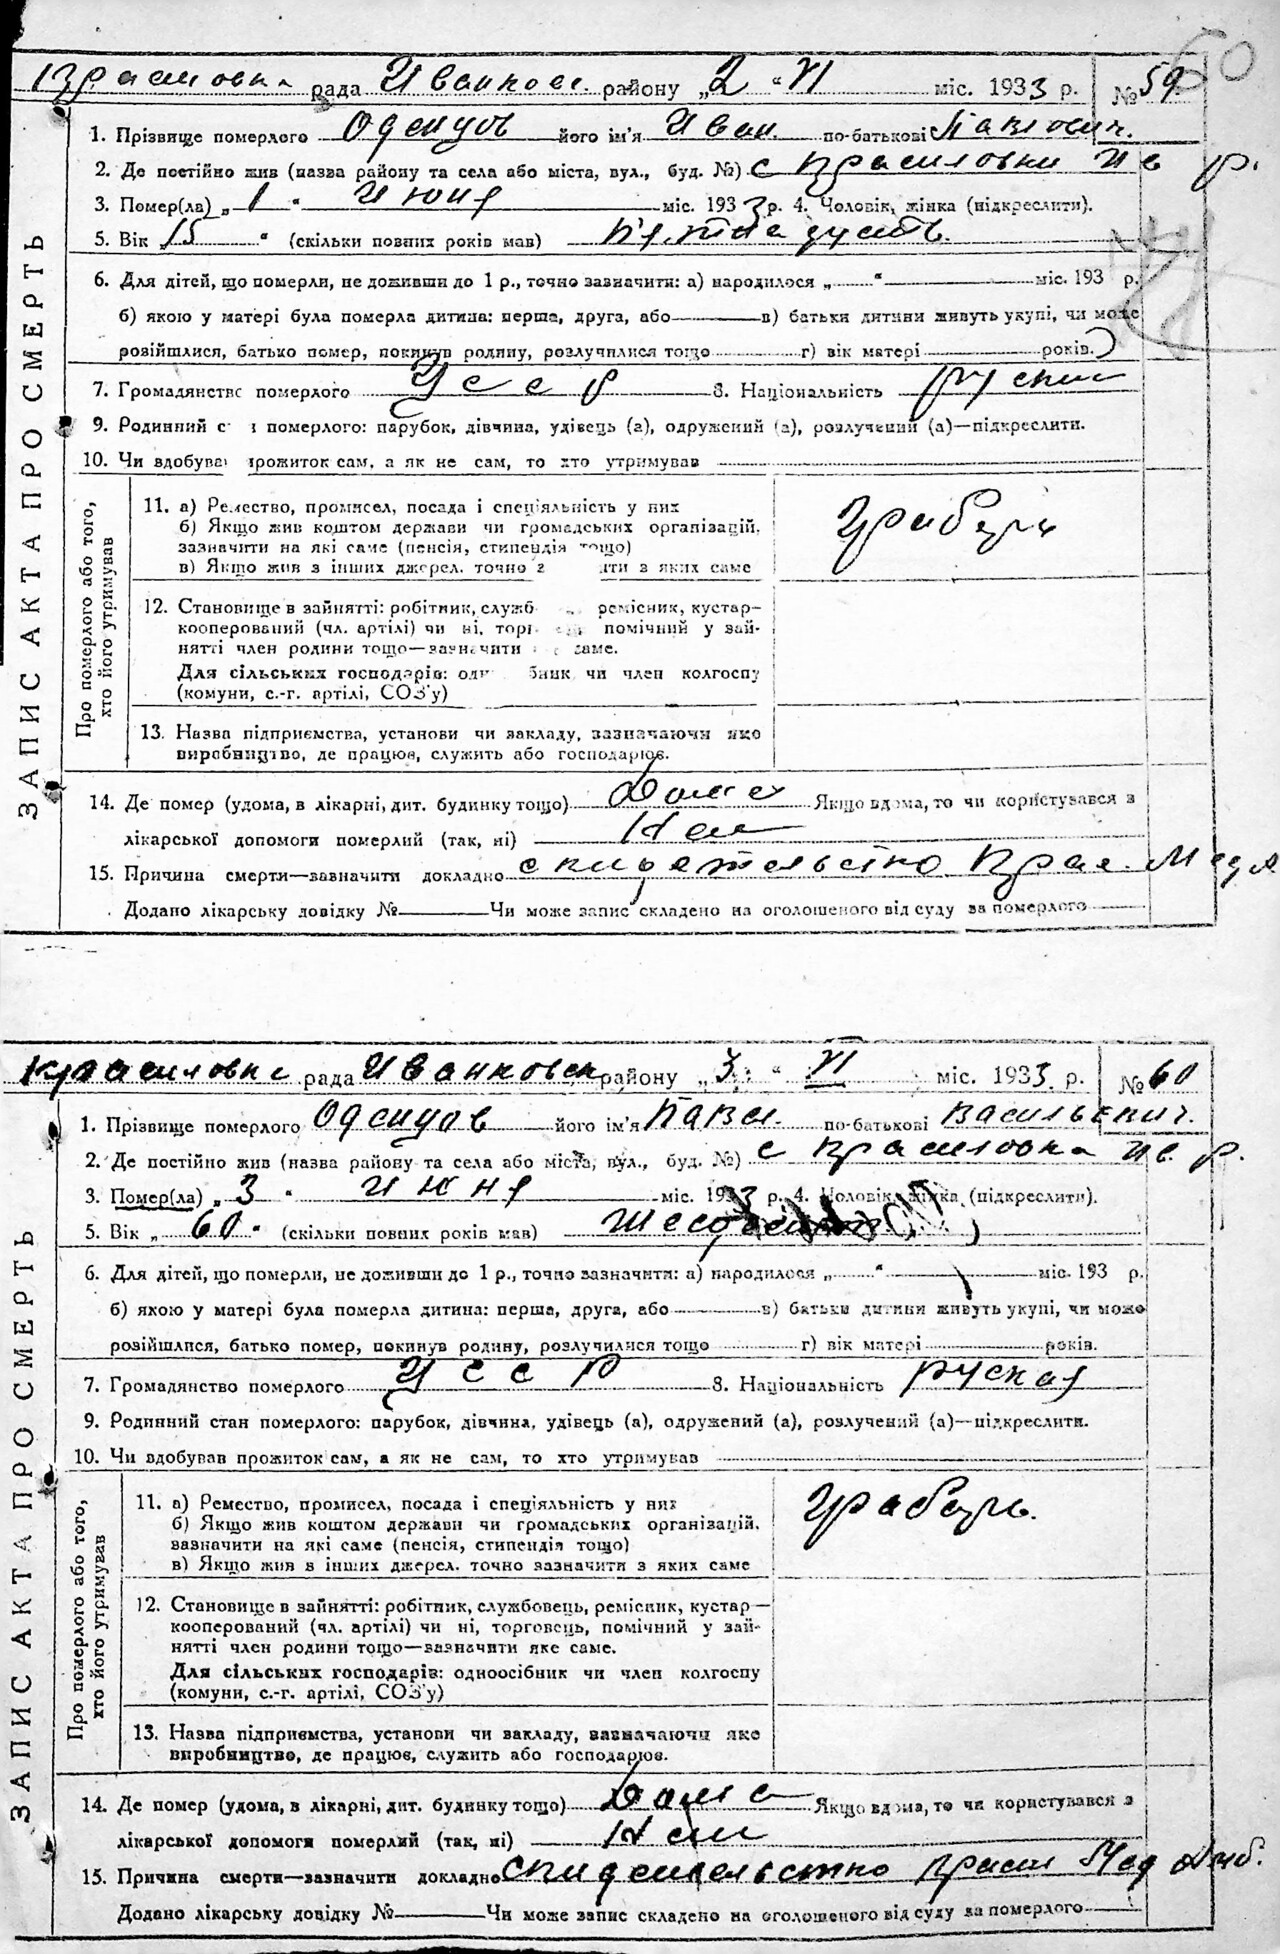 60
Красиловка рада Иванков. району „2“ VI міс. 1933 р. № 59
ЗАПИС АКТА ПРО СМЕРТЬ
1. Прізвище померлого Одєнцов його ім'я Иван по-батькові Павлович.
2. Де постійно жив (назва району та села або міста, вул., буд. №) с Красиловки Ив р.
3. Помер(ла) „1“ Июня міс. 1933 р. 4. Чоловік, жінка (підкреслити).
5. Вік 15 “ (скільки повних років мав)
6. Для дітей, що померли, не доживши до 1 р., точно зазначити: а) народилося „ “ міс. 193 р.
б) якою у матері була померла дитина: перша, друга, або в) батьки дитини живуть укупі, чи може
розійшлися, батько помер, покинув родину, розлучилися тощо г) вік матері років.
7. Громадянство померлого УССР 8. Національність руский
9. Родинний с померлого: парубок, дівчина, удівець (а), одружений (а), розлучений (а)—підкреслити.
10. Чи вдобував прожиток сам, а як не сам, то хто утримував
Про померлого або того,
хто його утримував
11. а) Ремество, промисел, посада і спеціяльність у них грабарь
б) Якщо жив коштом держави чи громадських організацій,
зазначити на які саме (пенсія, стипендія тощо)
в) Якщо жив з інших джерел, точно з яких саме
12. Становище в зайнятті: робітник, служб ремісник, кустар—
кооперований (чл. артілі) чи ні, торг помічний у зай-
нятті член родини тощо—зазначити саме.
Для сільських господарів: од бник чи член колгоспу
(комуни, с.-г. артілі, СОЗ'у)
13. Назва підприємства, установи чи закладу, зазначаючи яке
виробництво, де працює, служить або господарює.
14. Де помер (удома, в лікарні, дит. будинку тощо) Дома Якщо вдома, то чи користувався з
лікарської допомоги померлий (так, ні) Нет
15. Причина смерти—зазначити докладно Крас. Мед
Додано лікарську довідку № Чи може запис складено на оголошеного від суду за померлого
Красиловка рада Иванковск району „3“ VI міс. 1933 р. № 60
ЗАПИС АКТА ПРО СМЕРТЬ
1. Прізвище померлого Одєнцов його ім'я Павел по-батькові Васильевич.
2. Де постійно жив (назва району та села або міста, вул., буд. №) с Красиловка Ив. р.
3. Помер(ла) „3“ июня міс. 1933 р. 4. Чоловік, жінка (підкреслити).
5. Вік „60“ (скільки повних років мав)
6. Для дітей, що померли, не доживши до 1 р., точно зазначити: а) народилося „ “ міс. 193 р.
б) якою у матері була померла дитина: перша, друга, або в) батьки дитини живуть укупі, чи може
розійшлися, батько помер, покинув родину, розлучилися тощо г) вік матері років.
7. Громадянство померлого УССР 8. Національність руская
9. Родинний стан померлого: парубок, дівчина, удівець (а), одружений (а), розлучений (а)—підкреслити.
10. Чи вдобував прожиток сам, а як не сам, то хто утримував
Про померлого або того,
хто його утримував
11. а) Ремество, промисел, посада і спеціяльність у них грабарь.
б) Якщо жив коштом держави чи громадських організацій,
зазначити на які саме (пенсія, стипендія тощо)
в) Якщо жив з інших джерел, точно зазначити з яких саме
12. Становище в зайнятті: робітник, службовець, ремісник, кустар—
кооперований (чл. артілі) чи ні, торговець, помічний у зай-
нятті член родини тощо—зазначити яке саме.
Для сільських господарів: одноосібник чи член колгоспу
(комуни, с.-г. артілі, СОЗ'у)
13. Назва підприємства, установи чи закладу, зазначаючи яке
виробництво, де працює, служить або господарює.
14. Де помер (удома, в лікарні, дит. будинку тощо) Дома Якщо вдома, то чи користувався з
лікарської допомоги померлий (так, ні) Нет
15. Причина смерти—зазначити докладно Мед Амб.
Додано лікарську довідку № Чи може запис складено на оголошеного від суду за померлого